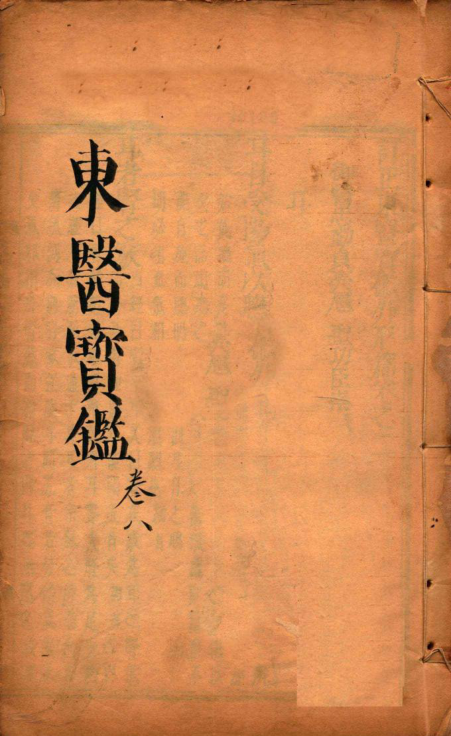 東醫寶鑑
卷八